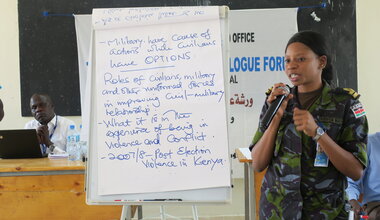 - Military have cause of
actions while civilians
have OPTIONS.
Roles of civilians, military
and other uniformed forces
in improving Civil-military
relationship.
- What it is in the
experience of being in
Violence and Conflict.
- 2007/8 - Post Election
Violence in Kenya.
D OFFICE
LOGUE FORU
AL